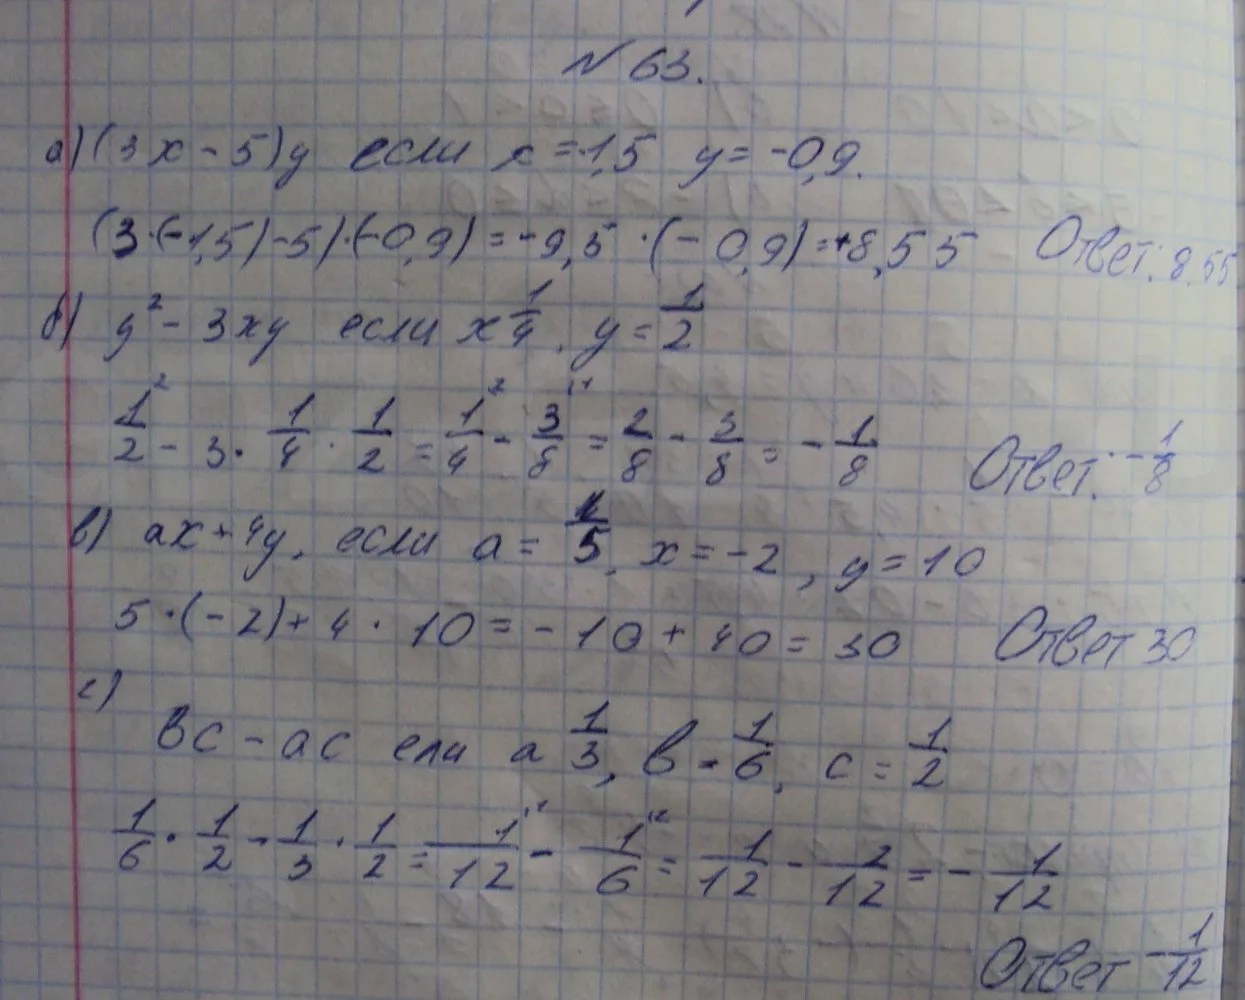 N 63.
а) (3x - 5)y если x = -1,5 y = -0,9.
(3·(-1,5)-5)·(-0,9) = -9,5 ·(-0,9) = +8,55 Ответ: 8,55
б) y² - 3xy если x 1/4, y = 1/2
1/2² - 3· 1/4 · 1/2 = 1/4 - 3/8 = 2/8 - 3/8 = - 1/8 Ответ: -1/8
в) ax + 4y, если a = 1/5, x = -2, y = 10
5·(-2)+ 4 · 10 = -10 + 40 = 30 Ответ 30
г)
вс - ас ели а 1/3, в = 1/6, с = 1/2
1/6 · 1/2 - 1/3 · 1/2 = 1/12 - 1/6 = 1/12 - 2/12 = - 1/12
Ответ -1/12